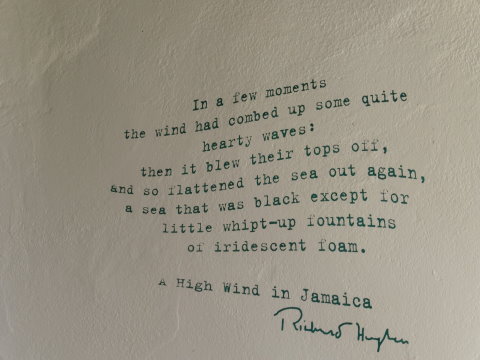 In a few moments
the wind had combed up some quite
hearty waves:
then it blew their tops off,
and so flattened the sea out again,
a sea that was black except for
little whipt-up fountains
of iridescent foam.
A High Wind in Jamaica
Richard Hughes